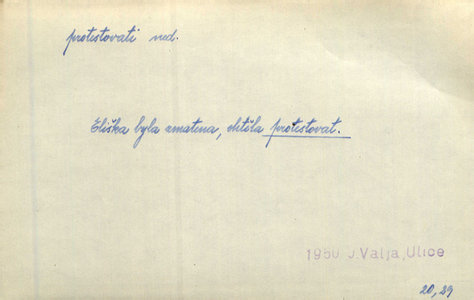 protestovati ned.
Eliška byla zmatena, chtěla protestovat.
1950 J. Valja, Ulice
20, 29